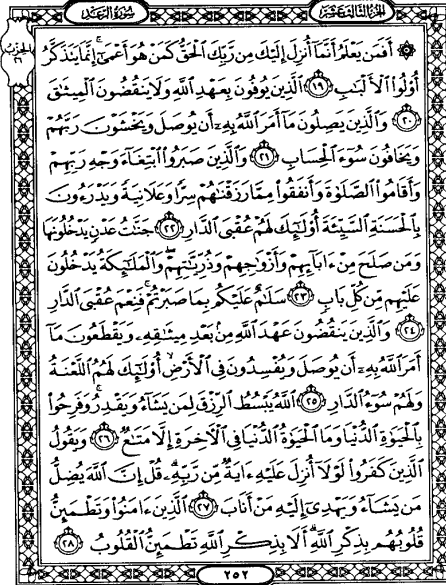 سُورَةُ الرَّعْدِ
الجزء الثالث عشر
الحزب
٢٦
۞ أَفَمَن يَعْلَمُ أَنَّمَآ أُنزِلَ إِلَيْكَ مِن رَّبِّكَ ٱلْحَقُّ كَمَنْ هُوَ أَعْمَىٰٓ ۚ إِنَّمَا يَتَذَكَّرُ
أُو۟لُوا۟ ٱلْأَلْبَٰبِ ١٩ ٱلَّذِينَ يُوفُونَ بِعَهْدِ ٱللَّهِ وَلَا يَنقُضُونَ ٱلْمِيثَٰقَ
٢٠ وَٱلَّذِينَ يَصِلُونَ مَآ أَمَرَ ٱللَّهُ بِهِۦٓ أَن يُوصَلَ وَيَخْشَوْنَ رَبَّهُمْ
وَيَخَافُونَ سُوٓءَ ٱلْحِسَابِ ٢١ وَٱلَّذِينَ صَبَرُوا۟ ٱبْتِغَآءَ وَجْهِ رَبِّهِمْ
وَأَقَامُوا۟ ٱلصَّلَوٰةَ وَأَنفَقُوا۟ مِمَّا رَزَقْنَٰهُمْ سِرًّا وَعَلَانِيَةً وَيَدْرَءُونَ
بِٱلْحَسَنَةِ ٱلسَّيِّئَةَ أُو۟لَٰٓئِكَ لَهُمْ عُقْبَى ٱلدَّارِ ٢٢ جَنَّٰتُ عَدْنٍ يَدْخُلُونَهَا
وَمَن صَلَحَ مِنْ ءَابَآئِهِمْ وَأَزْوَٰجِهِمْ وَذُرِّيَّٰتِهِمْ ۖ وَٱلْمَلَٰٓئِكَةُ يَدْخُلُونَ
عَلَيْهِم مِّن كُلِّ بَابٍ ٢٣ سَلَٰمٌ عَلَيْكُم بِمَا صَبَرْتُمْ ۚ فَنِعْمَ عُقْبَى ٱلدَّارِ
٢٤ وَٱلَّذِينَ يَنقُضُونَ عَهْدَ ٱللَّهِ مِنۢ بَعْدِ مِيثَٰقِهِۦ وَيَقْطَعُونَ مَآ
أَمَرَ ٱللَّهُ بِهِۦٓ أَن يُوصَلَ وَيُفْسِدُونَ فِى ٱلْأَرْضِ ۙ أُو۟لَٰٓئِكَ لَهُمُ ٱللَّعْنَةُ
وَلَهُمْ سُوٓءُ ٱلدَّارِ ٢٥ ٱللَّهُ يَبْسُطُ ٱلرِّزْقَ لِمَن يَشَآءُ وَيَقْدِرُ ۚ وَفَرِحُوا۟
بِٱلْحَيَوٰةِ ٱلدُّنْيَا وَمَا ٱلْحَيَوٰةُ ٱلدُّنْيَا فِى ٱلْءَاخِرَةِ إِلَّا مَتَٰعٌ ٢٦ وَيَقُولُ
ٱلَّذِينَ كَفَرُوا۟ لَوْلَآ أُنزِلَ عَلَيْهِ ءَايَةٌ مِّن رَّبِّهِۦ ۗ قُلْ إِنَّ ٱللَّهَ يُضِلُّ
مَن يَشَآءُ وَيَهْدِىٓ إِلَيْهِ مَنْ أَنَابَ ٢٧ ٱلَّذِينَ ءَامَنُوا۟ وَتَطْمَئِنُّ
قُلُوبُهُم بِذِكْرِ ٱللَّهِ ۗ أَلَا بِذِكْرِ ٱللَّهِ تَطْمَئِنُّ ٱلْقُلُوبُ ٢٨
٢٥٢